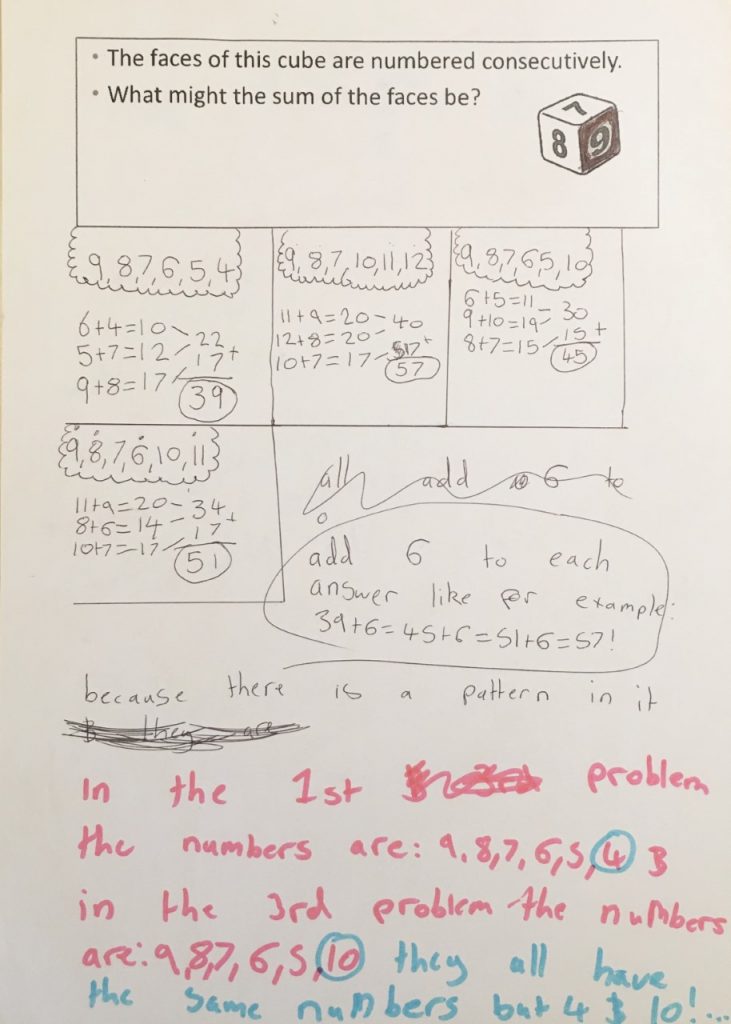 • The faces of this cube are numbered consecutively.
• What might the sum of the faces be?
7
8 9
9,8,7,6,5,4
6+4=10
5+7=12
9+8=17
22
17+
39
9,8,7,10,11,12
11+9=20
12+8=20
10+7=17
40
17+
57
9,8,7,6,5,10
6+5=11
9+10=19
8+7=15
30
15+
45
9,8,7,6,10,11
11+9=20
8+6=14
10+7=17
34
17+
51
all add 6 to
add 6 to each
answer like for example:
39+6=45+6=51+6=57!
because there is a pattern in it
they are
In the 1st problem
the numbers are: 9,8,7,6,5,4 &
in the 3rd problem the numbers
are: 9,8,7,6,5,10 they all have
the same numbers but 4 & 10!...